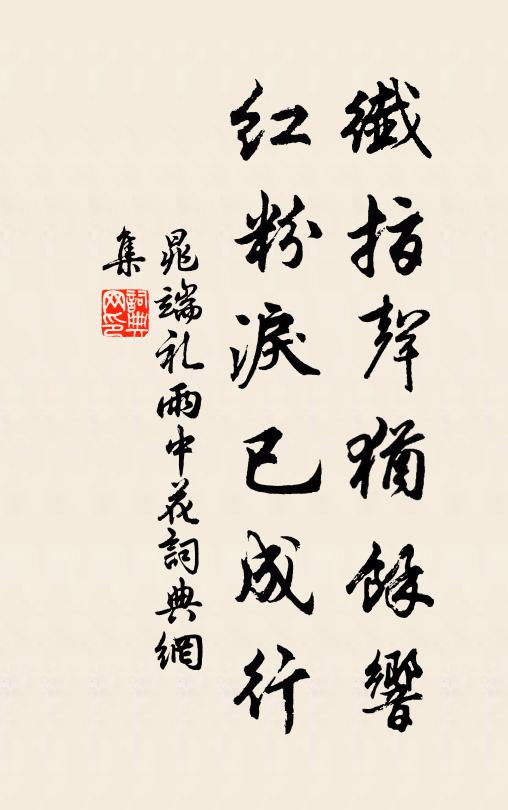 纖指聲猶餘響
紅粉淚已成行
晁端礼雨中花詞典網
集
詞典
网印